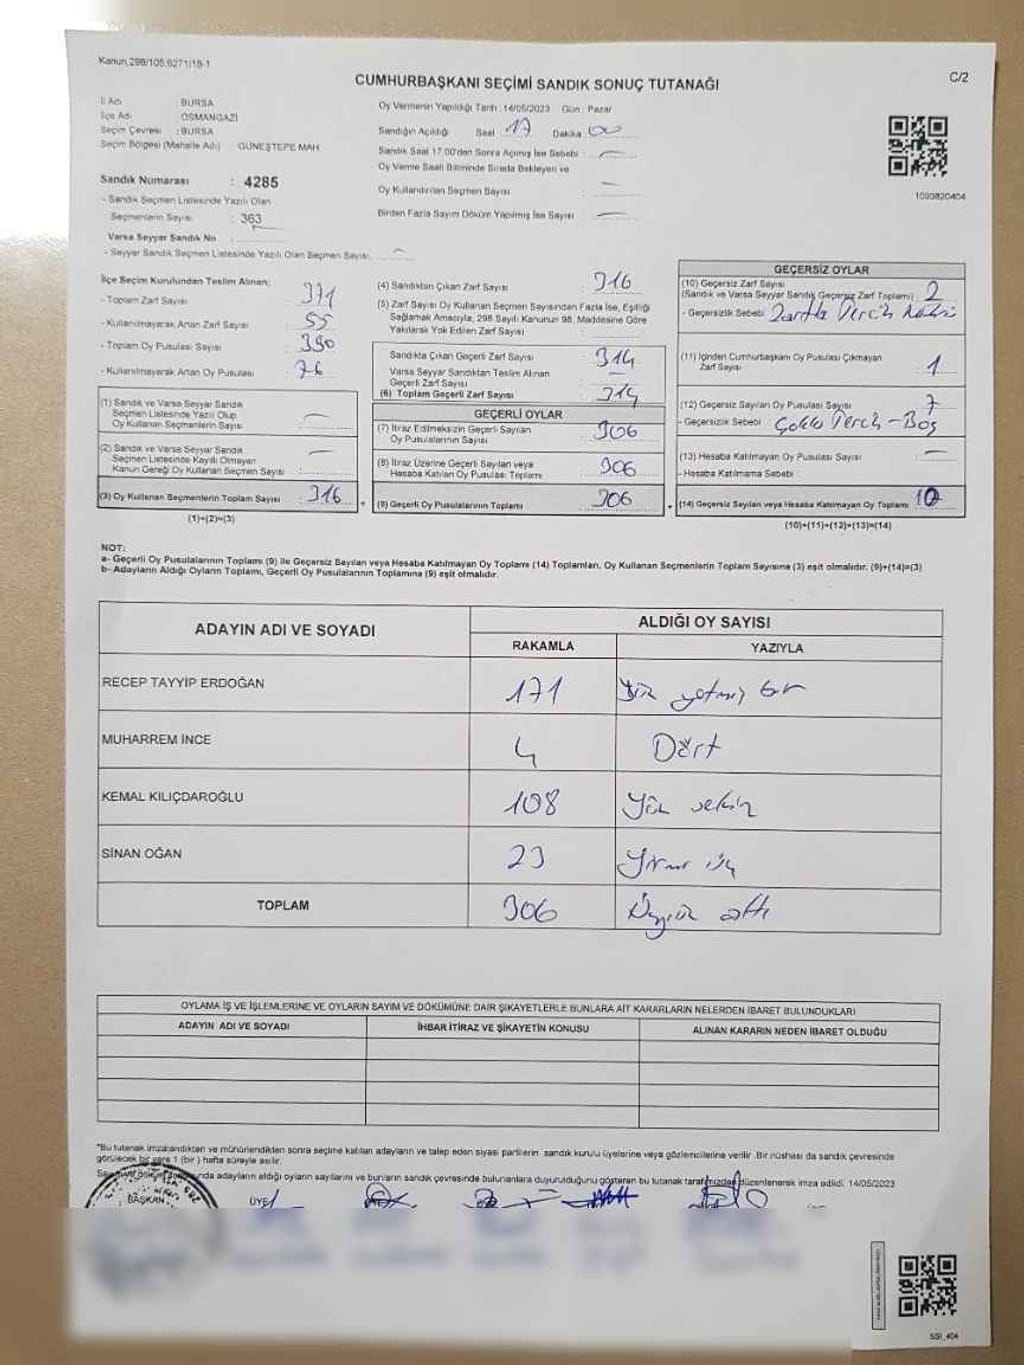 Kanun,298/105,6271/18-1
CUMHURBAŞKANI SEÇİMİ SANDIK SONUÇ TUTANAĞI
C/2
İl Adı BURSA
İlçe Adı OSMANGAZİ
Seçim Çevresi : BURSA
Seçim Bölgesi (Mahalle Adı) GÜNEŞTEPE MAH.
Sandık Numarası : 4285
- Sandık Seçmen Listesinde Yazılı Olan
Seçmenlerin Sayısı : 363
Varsa Seyyar Sandık No :
- Seyyar Sandık Seçmen Listesinde Yazılı Olan Seçmen Sayısı. —
Oy Vermenin Yapıldığı Tarih : 14/05/2023 Gün : Pazar
Sandığın Açıldığı Saat : 17 Dakika : 00
Sandık Saat 17.00'den Sonra Açılmış İse Sebebi : —
Oy Verme Saati Bitiminde Sırada Bekleyen ve
Oy Kullandırılan Seçmen Sayısı : —
Birden Fazla Sayım Döküm Yapılmış İse Sayısı : —
1090820404
İlçe Seçim Kurulundan Teslim Alınan:
- Toplam Zarf Sayısı : 371
- Kullanılmayarak Artan Zarf Sayısı : 55
- Toplam Oy Pusulası Sayısı : 390
- Kullanılmayarak Artan Oy Pusulası : 76
(1) Sandık ve Varsa Seyyar Sandık
Seçmen Listesinde Yazılı Olup
Oy Kullanan Seçmenlerin Sayısı : —
(2) Sandık ve Varsa Seyyar Sandık
Seçmen Listesinde Kayıtlı Olmayan
Kanun Gereği Oy Kullanan Seçmen Sayısı : —
(3) Oy Kullanan Seçmenlerin Toplam Sayısı : 316
(1)+(2)=(3)
(4) Sandıktan Çıkan Zarf Sayısı : 316
(5) Zarf Sayısı Oy Kullanan Seçmen Sayısından Fazla İse, Eşitliği
Sağlamak Amacıyla, 298 Sayılı Kanunun 98. Maddesine Göre
Yakılarak Yok Edilen Zarf Sayısı :
Sandıkta Çıkan Geçerli Zarf Sayısı 314
Varsa Seyyar Sandıktan Teslim Alınan
Geçerli Zarf Sayısı —
(6) Toplam Geçerli Zarf Sayısı : 314
GEÇERLİ OYLAR
(7) İtiraz Edilmeksizin Geçerli Sayılan
Oy Pusulalarının Sayısı : 306
(8) İtiraz Üzerine Geçerli Sayılan veya
Hesaba Katılan Oy Pusulası Toplamı : 306
(9) Geçerli Oy Pusulalarının Toplamı : 306
GEÇERSİZ OYLAR
(10) Geçersiz Zarf Sayısı
(Sandık ve Varsa Seyyar Sandık Geçersiz Zarf Toplamı) : 2
- Geçersizlik Sebebi : Zarfta Tercih
(11) İçinden Cumhurbaşkanı Oy Pusulası Çıkmayan
Zarf Sayısı : 1
(12) Geçersiz Sayılan Oy Pusulası Sayısı : 7
- Geçersizlik Sebebi : Çoklu Tercih - Boş
(13) Hesaba Katılmayan Oy Pusulası Sayısı : —
- Hesaba Katılmama Sebebi :
(14) Geçersiz Sayılan veya Hesaba Katılmayan Oy Toplamı : 10
(10)+(11)+(12)+(13)=(14)
NOT:
a- Geçerli Oy Pusulalarının Toplamı (9) ile Geçersiz Sayılan veya Hesaba Katılmayan Oy Toplamı (14) Toplamları, Oy Kullanan Seçmenlerin Toplam Sayısına (3) eşit olmalıdır. (9)+(14)=(3)
b- Adayların Aldığı Oyların Toplamı, Geçerli Oy Pusulalarının Toplamına (9) eşit olmalıdır.
ADAYIN ADI VE SOYADI
ALDIĞI OY SAYISI
RAKAMLA YAZIYLA
RECEP TAYYİP ERDOĞAN 171 Yüz yetmiş bir
MUHARREM İNCE 4 Dört
KEMAL KILIÇDAROĞLU 108 Yüz sekiz
SİNAN OĞAN 23 Yirmi üç
TOPLAM 306 Üçyüz altı
OYLAMA İŞ VE İŞLEMLERİNE VE OYLARIN SAYIM VE DÖKÜMÜNE DAİR ŞİKAYETLERLE BUNLARA AİT KARARLARIN NELERDEN İBARET BULUNDUKLARI
ADAYIN ADI VE SOYADI İHBAR İTİRAZ VE ŞİKAYETİN KONUSU ALINAN KARARIN NEDEN İBARET OLDUĞU
*Bu tutanak imzalandıktan ve mühürlendikten sonra seçime katılan adayların ve talep eden siyasi partilerin sandık kurulu üyelerine veya gözlemcilerine verilir. Bir nüshası da sandık çevresinde
görülecek bir yere 1 (bir) hafta süreyle asılır.
adayların aldığı oyların sayılarını ve bunların sandık çevresinde bulunanlara duyurulduğunu gösteren bu tutanak tarafımızdan düzenlenerek imza edildi. 14/05/2023
BAŞKAN ÜYE
SSI_404